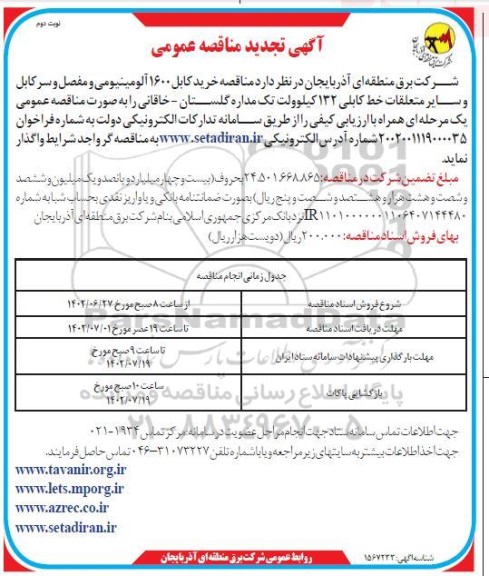 نوبت دوم
آگهی تجدید مناقصه عمومی
شرکت برق منطقه‌ای آذربایجان در نظر دارد مناقصه خرید کابل ۱۶۰۰ آلومینیومی و مفصل و سر کابل
و سایر متعلقات خط کابلی ۱۳۲ کیلوولت تک مداره گلستان - خاقانی را به صورت مناقصه عمومی
یک مرحله‌ای همراه با ارزیابی کیفی را از طریق سامانه تدارکات الکترونیکی دولت به شماره فراخوان
۲۰۰۲۰۰۱۱۱۹۰۰۰۰۳۵ شماره آدرس الکترونیکی www.setadiran.ir به مناقصه گر واجد شرایط واگذار
نماید.
مبلغ تضمین شرکت در مناقصه: ۲۴.۵۰۱.۶۶۸.۸۶۵ بحروف (بیست و چهار میلیارد و پانصد و یک میلیون و ششصد
و شصت و هشت هزار و هشتصد و شصت و پنج ریال) بصورت ضمانتنامه بانکی و یا واریز نقدی بحساب شبا به شماره
IR۱۱۰۱۰۰۰۰۰۰۱۱۰۶۴۰۷۱۴۴۴۸۰ نزد بانک مرکزی جمهوری اسلامی بنام شرکت برق منطقه‌ای آذربایجان
بهای فروش اسناد مناقصه: ۲۰۰.۰۰۰ ریال (دویست هزار ریال)
جدول زمانی انجام مناقصه
شروع فروش اسناد مناقصه از ساعت ۸ صبح مورخ ۱۴۰۲/۰۶/۲۷
مهلت دریافت اسناد مناقصه تا ساعت ۱۹ عصر مورخ ۱۴۰۲/۰۷/۰۱
مهلت بارگذاری پیشنهادات سامانه ستاد ایران تا ساعت ۹ صبح مورخ
۱۴۰۲/۰۷/۱۹
بازگشایی پاکات ساعت ۱۰ صبح مورخ
۱۴۰۲/۰۷/۱۹
جهت اطلاعات تماس سامانه ستاد جهت انجام مراحل عضویت در سامانه: مرکز تماس ۱۹۳۴-۰۲۱
جهت اخذ اطلاعات بیشتر به سایتهای زیر مراجعه و یا با شماره تلفن ۳۱۰۷۳۲۲۷-۰۴۶ تماس حاصل فرمایند.
www.tavanir.org.ir
www.lets.mporg.ir
www.azrec.co.ir
www.setadiran.ir
شناسه آگهی: ۱۵۶۷۲۳۳
روابط عمومی شرکت برق منطقه ای آذربایجان